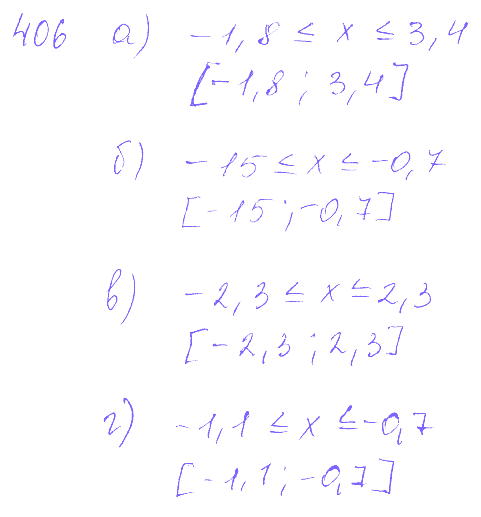 406 а) -1,8 ≤ x ≤ 3,4
[-1,8 ; 3,4]
б) -15 ≤ x ≤ -0,7
[-15 ; -0,7]
в) -2,3 ≤ x ≤ 2,3
[-2,3 ; 2,3]
г) -1,1 ≤ x ≤ -0,7
[-1,1 ; -0,7]